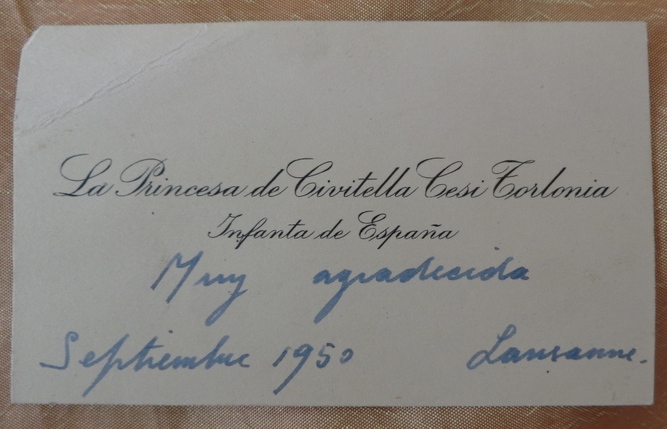 La Princesa de Civitella Cesi Torlonia
Infanta de España
Muy agradecida
Septiembre 1950 Lausanne.